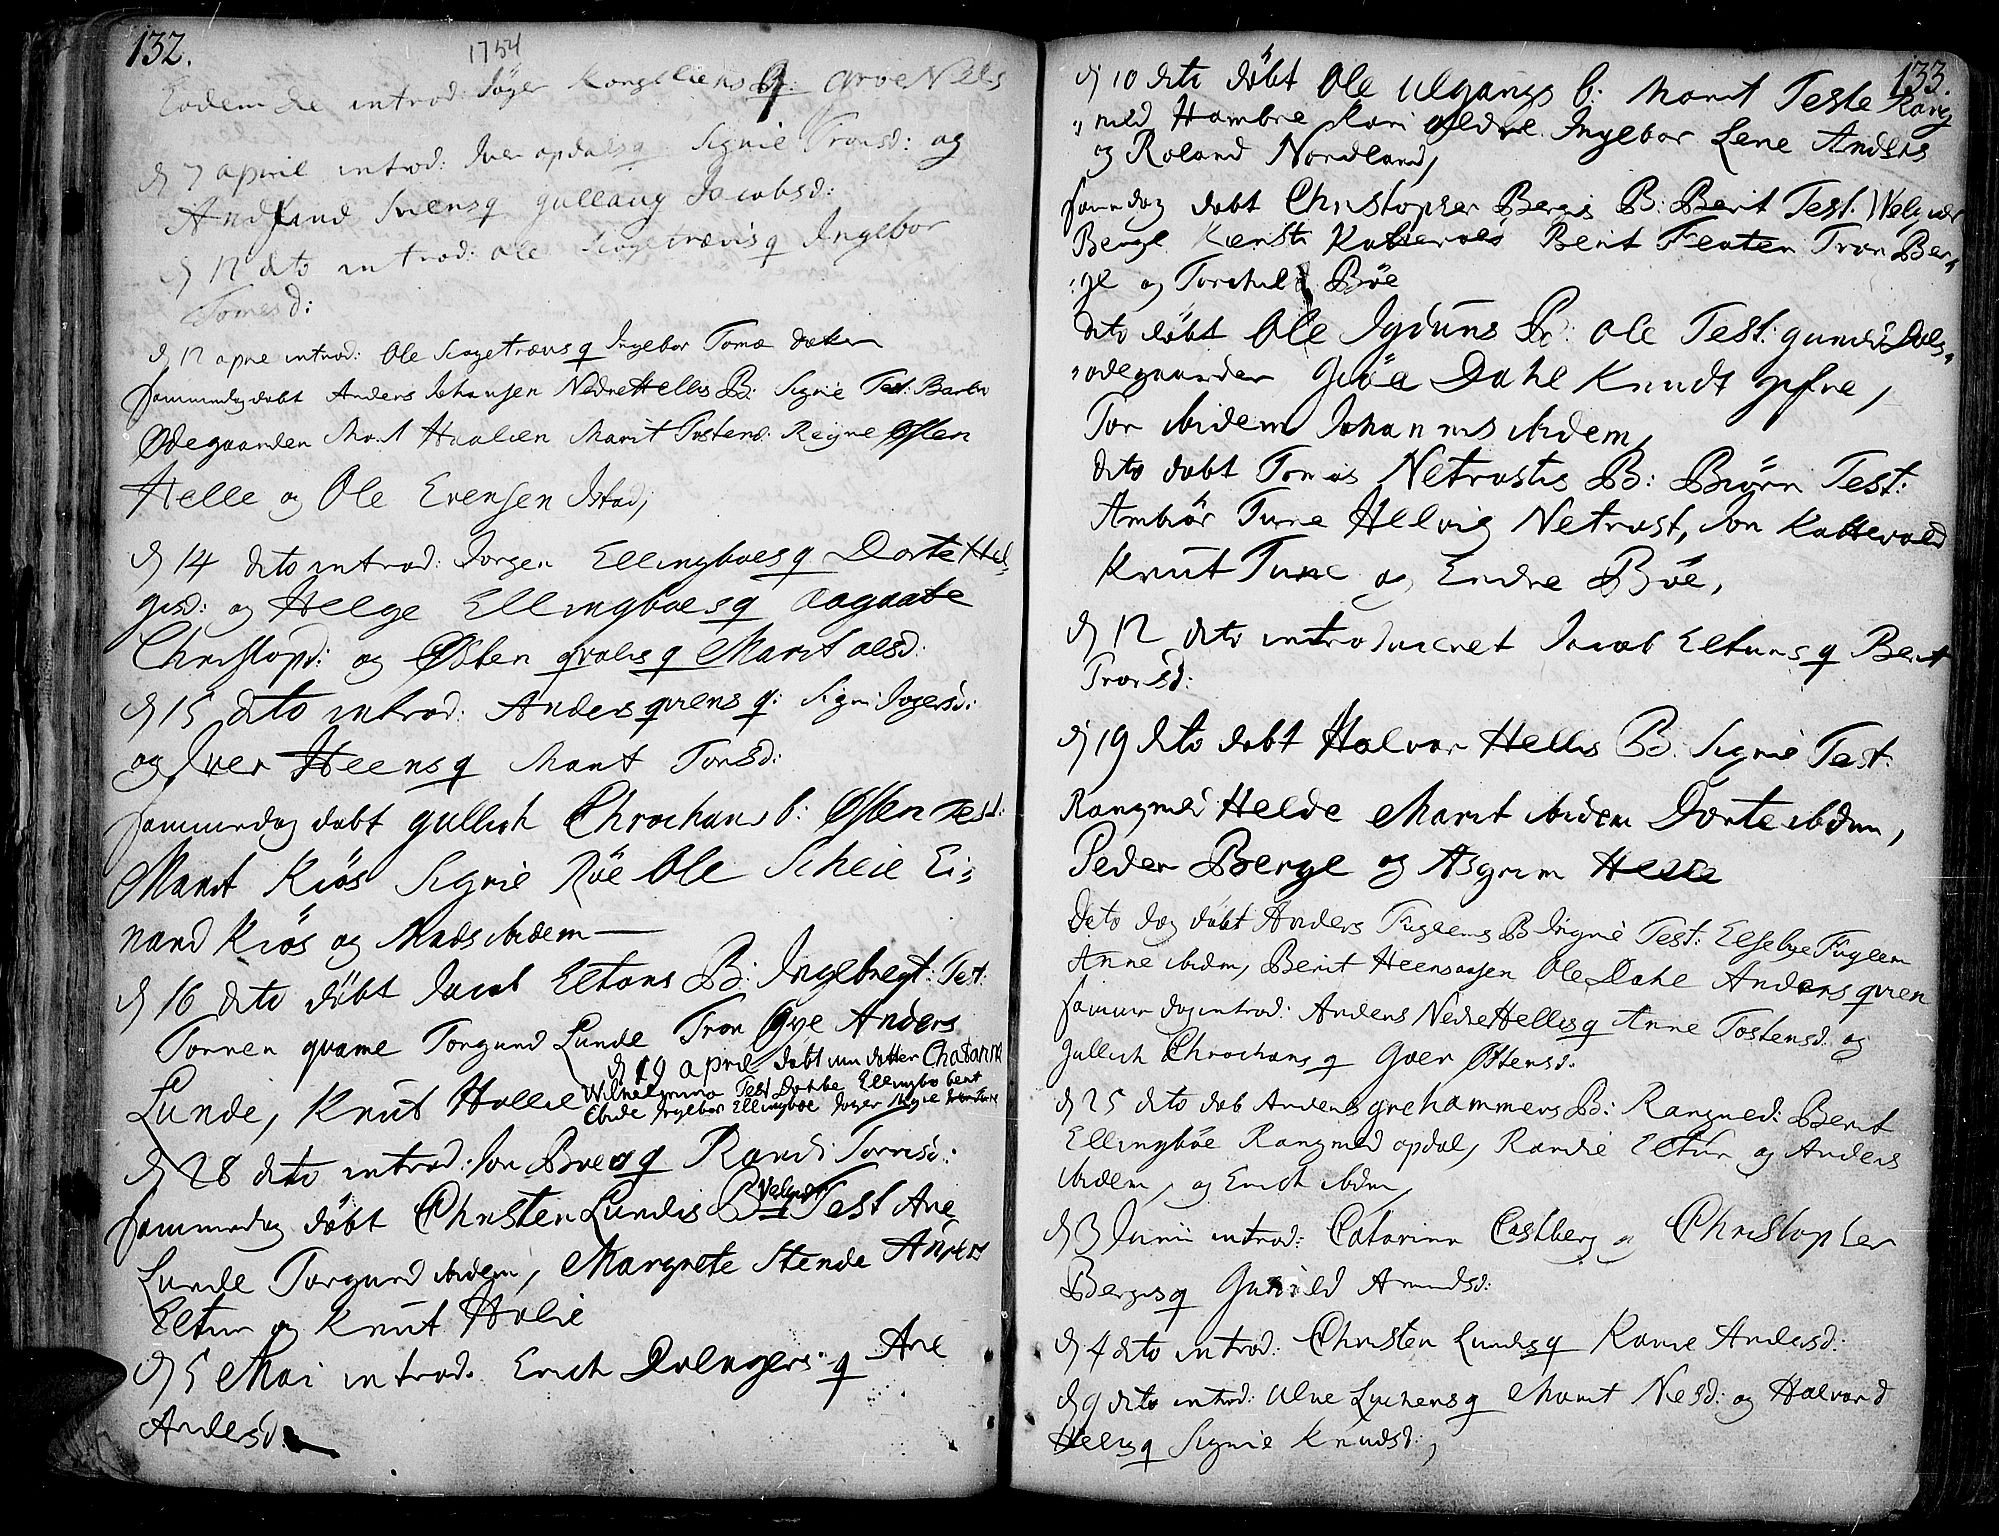 132.
1754
Eodem die introd: Joger Kongsliens q: Groe Nils
d 7 april introd: Iver opdals q Signie Tronsd: og
And Sviens q gullaug Jacobsd:
d 12 dito introd: ole Scogetrævis q Ingebor
Tomesd:
d 12 apre introd: Ole Scogetrævs q Ingebor Tomæ dater
sammedag døbt Anders Johansen NedreHelles B: Signie Test: Barbr
Ødegaarden Marit Haalien Marit Tostens: Reigne Østen
Helle og Ole Evensen Istad,
d 14 dito introd: Jorgen Ellingboes q Dorte Hel-
gisd: og Helge Ellingboes q Aagaate
Christopd: og Østen qvales q Marit olsd:
d 15 dito introd: Anders qviens q: Signi Jogersd:
og Iver Heens q Marit Torsd:
sammedag døbt gullich Chrochans b: Østen Test:
Marit Kiøs Signie Røe Ole Scheie Ei-
nand Kiøs og Mads ibidem
d 16 dito døbt Jacob Eltons B: Ingebregt: Test:
Torren quame Torgund Lunde Tron Øye Anders
d 19 april døbt min datter Chatarina
Lunde, Knut Hollie Wilhelmina Test Dorthe Ellingbo berit
Elnde Ingebor Ellingboe Joger
d 28 dito introd: Jon Bøes q Randi Torrisd:
sammedag døbt Christen Lundis B Test Ane
Lunde Torgund ibidem, Margrete Stende Anders
Eltun og Knut Holie
d 5 Mai introd. Erich Dvlengers q Ane
Andersd:
133.
d 10 dito døbt Ole Ulgangs b: Marit Teste Rang
-med Hambre Kari Ingebor Lene Anders
og Roland Nordland,
samdag døbt Christopher Bergis B: Berit Test.
Berge Kiersti Kattevold Berit Featen Tron Ber-
-ge og Torchil Bøe
dito døbt Ole Igduns B: ole Test: Dals-
-odegaarden Giøa Dahl Knudt gifre,
Tor ibidem Johannis ibidem,
dito døbt Tomas Netrostis B: Biørn Test:
Ambiør Tune Hellvig Netrost, Jon Kattevold
Knut Tune og Endre Bøe,
d 12 dito introduceret Jacob Eltuns q Berit
Tronsd:
d 19 dito døbt Halvor Hellis B: Signie Test:
Rangmed Helde Marit ibidem Dorte ibidem,
Peder Berge og Asgrim Helle
Dito dag døbt Anders Fugleems B Signie Test: Elsebye Fugleem
Anne ibidem, Berit Heensaasen Ole Dahl Anders qvien
samme dag introd: Anders NedreHellis q Anne Tostensd: og
gullich Chrochans q Goer Ostensd:
d 25 dito døb Anders grehammers B: Rangned: Berit
Ellingbøe Rangmed opdal, Randie Eltun og Anders
ibidem, og Erich ibdm,
d 3 Junii introd: Catarina Castberg og Christopher
Bergis q Gunild Amundsd:
d 4 dito introd. Christen Lundis q Karie Andersd:
d 9 dito introd: Ulve Lychens q Marit Nilsd: og Halvord
Hellis q Signie Knudsd:,